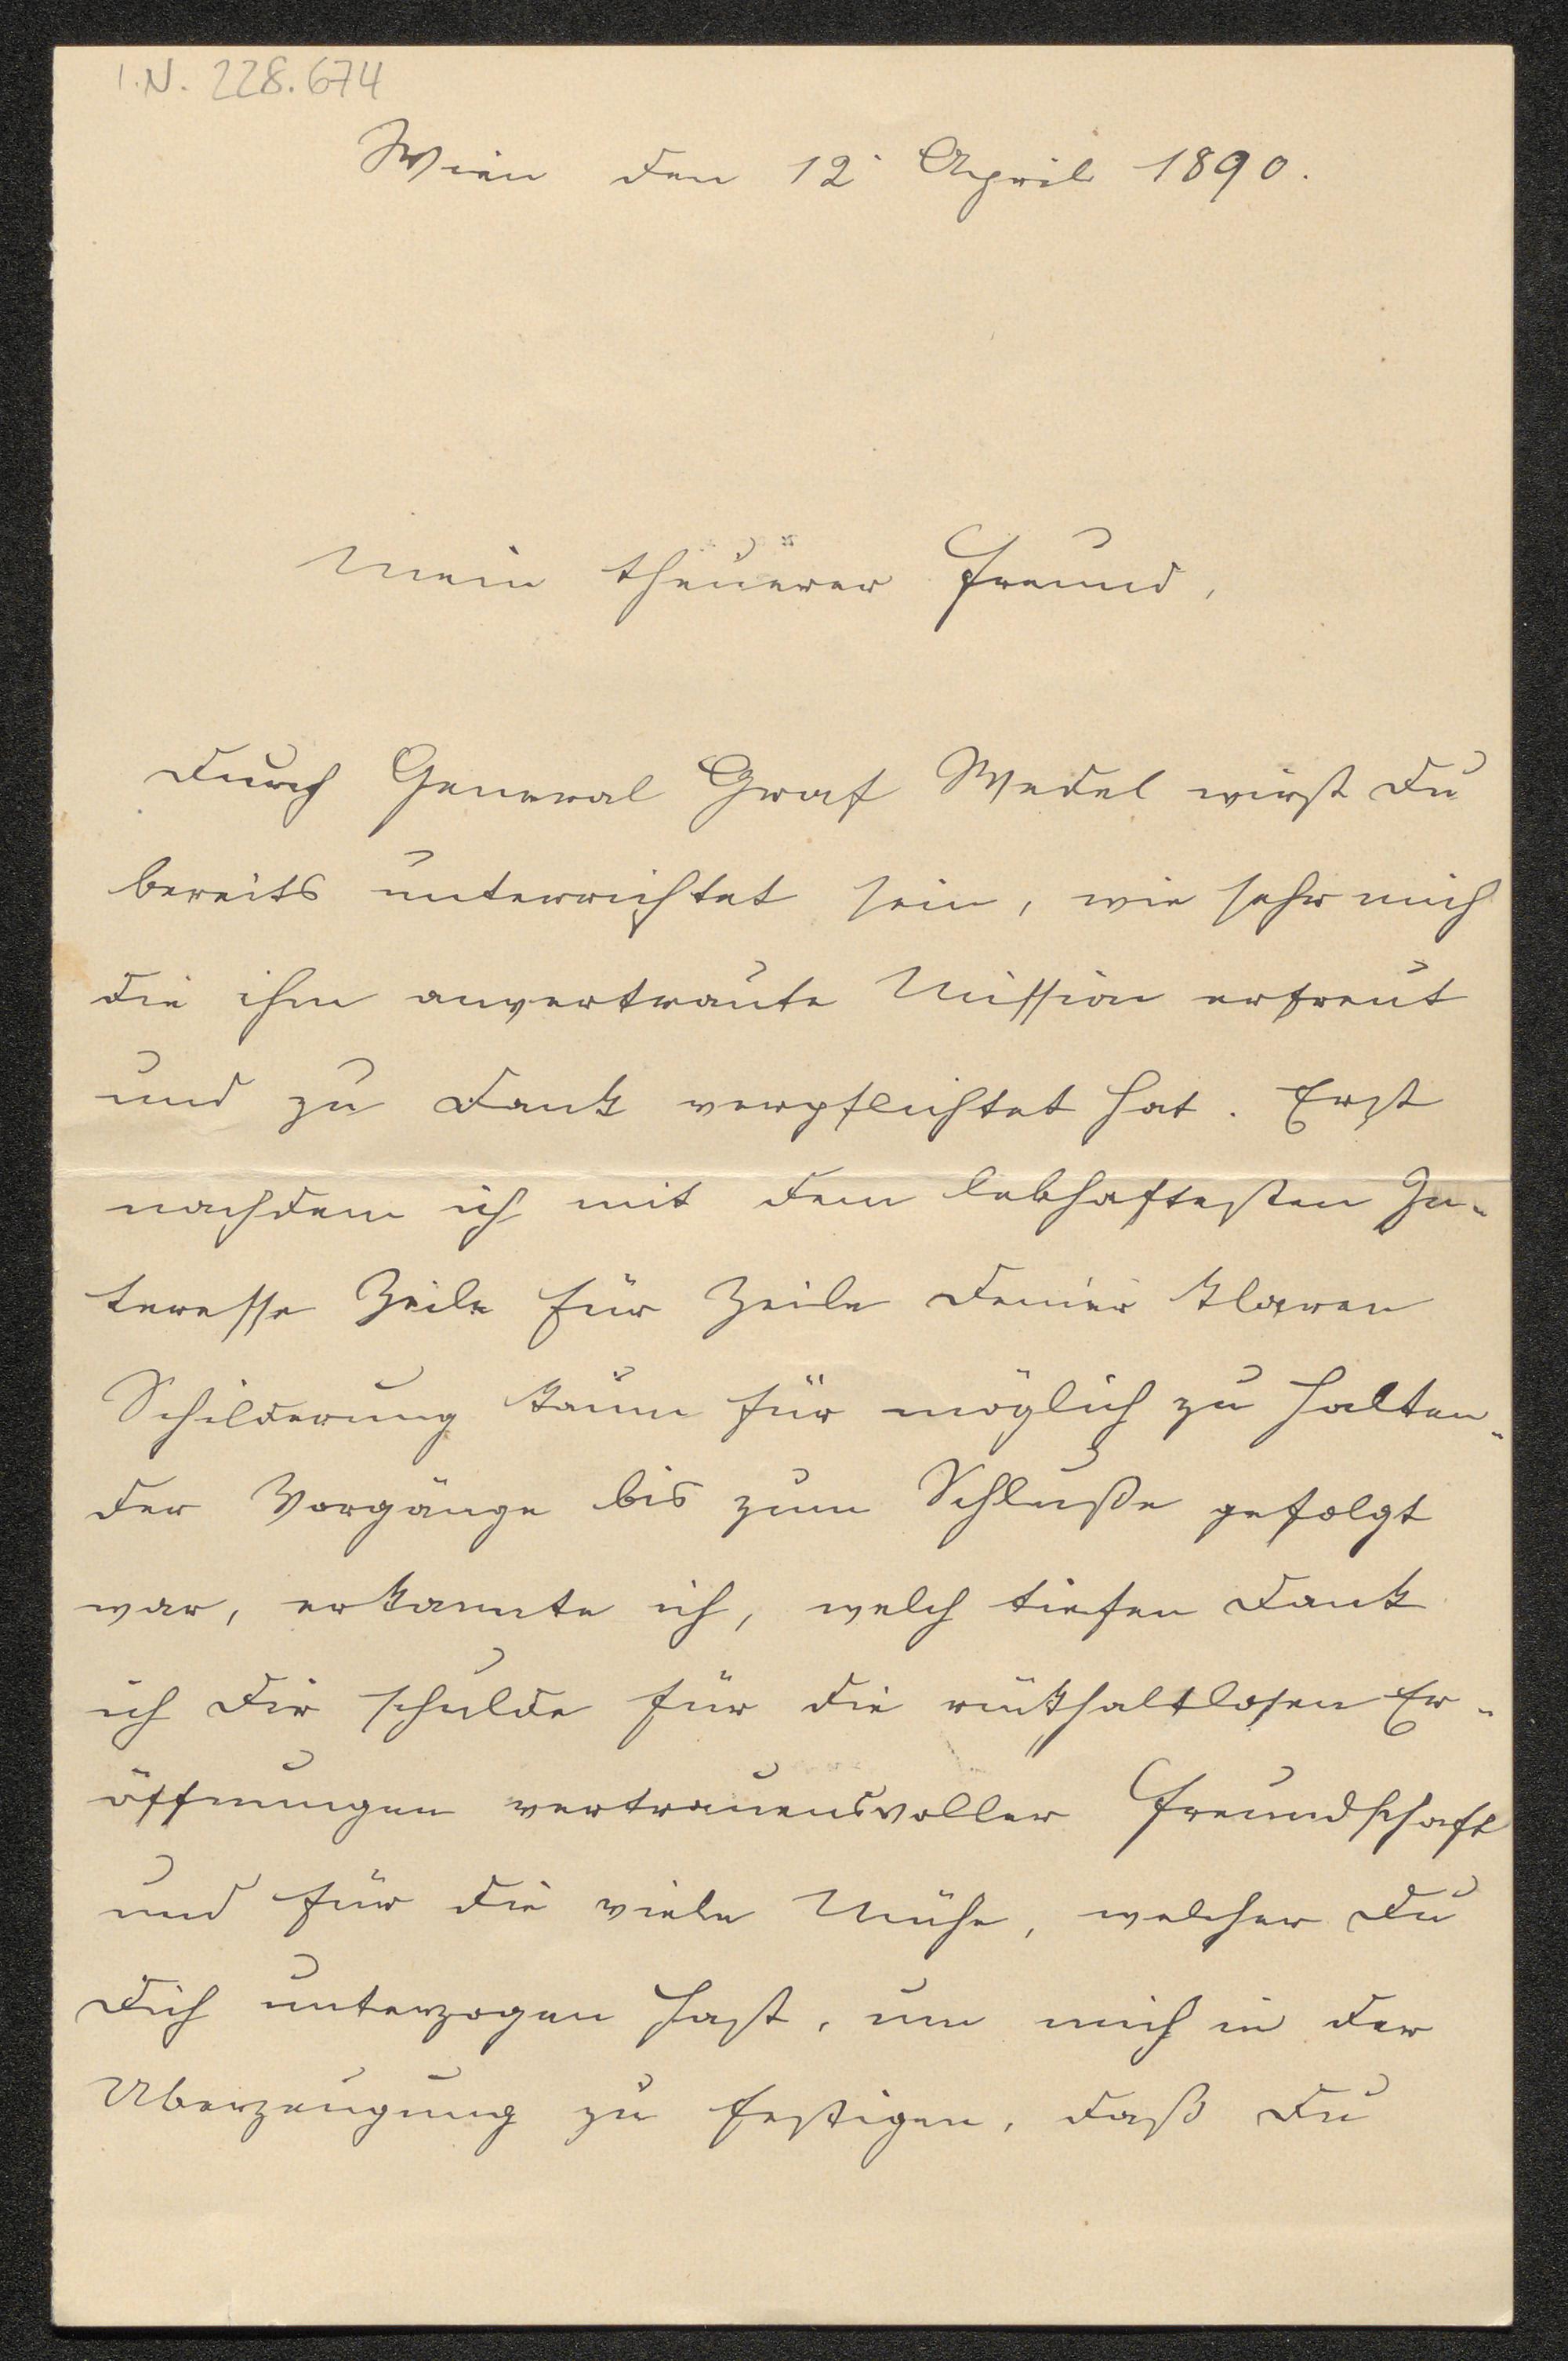 I.N. 228.674
Wien den 12 April 1890.
Mein theuerer Freund,
Durch General Graf Wedel wirst Du
bereits unterrichtet sein, wie sehr mich
die ihm anvertraute Mission erfreut
und zu Dank verpflichtet hat. Erst
nachdem ich mit dem lebhaftesten In-
teresse Zeile für Zeile Deiner klaren
Schilderung kaum für möglich zu halten-
der Vorgänge bis zum Schluße gefolgt
war, erkannte ich, welch tiefen Dank
ich Dir schulde für die rückhaltlosen Er-
öffnungen vertrauensvoller Freundschaft
und für die viele Mühe, welcher Du
Dich unterzogen hast, um mich in der
Uberzeugung zu festigen, daß Du